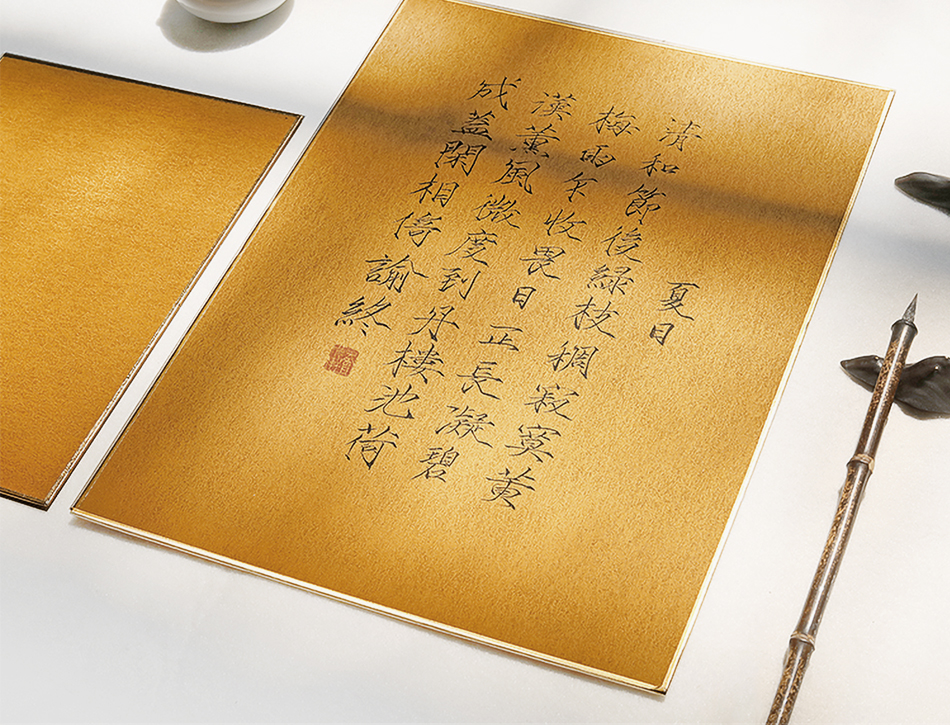 夏日
清和節後綠枝稠寂寞黃
梅雨乍收畏日正長凝碧
漢薰風微度到丹樓池荷
成蓋閑相倚諭終